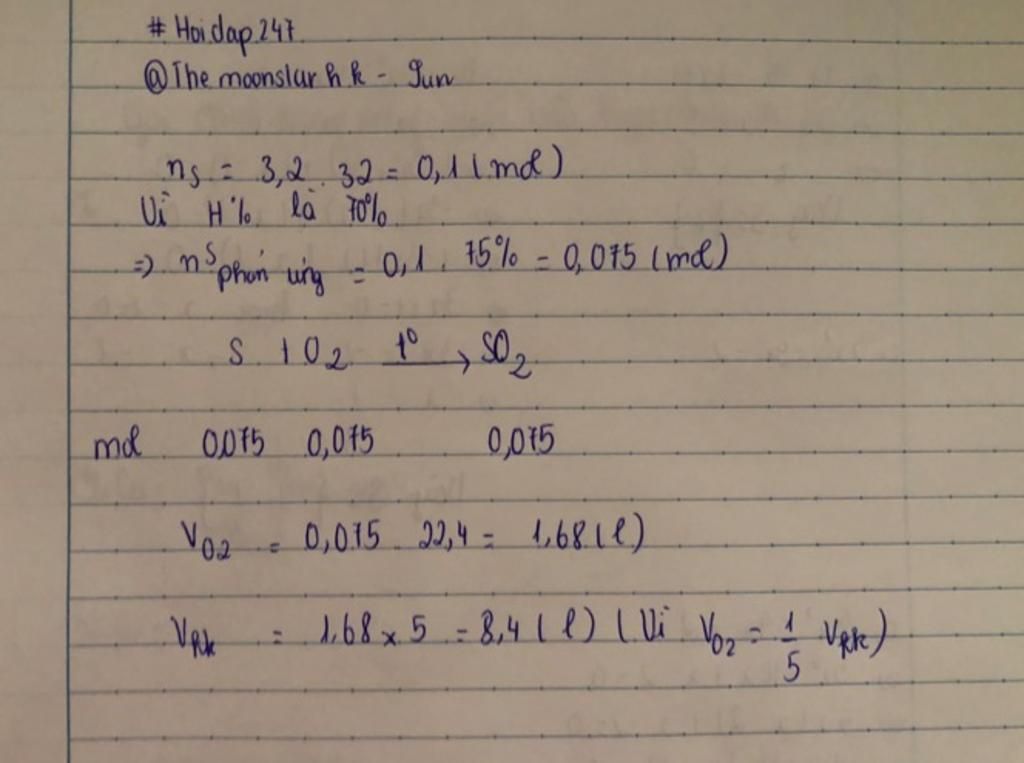 # Hoidap247
@The moonstar h k - Jun
nS = 3,2 . 32 = 0,1 (mol)
Vì H% là 70%
=> nS phản ứng = 0,1 . 75% = 0,075 (mol)
S + O2 t° → SO2
mol 0,075 0,075 0,075
VO2 = 0,075 . 22,4 = 1,68 (l)
Vkk = 1,68 x 5 = 8,4 (l) (Vì VO2 = 1/5 Vkk)